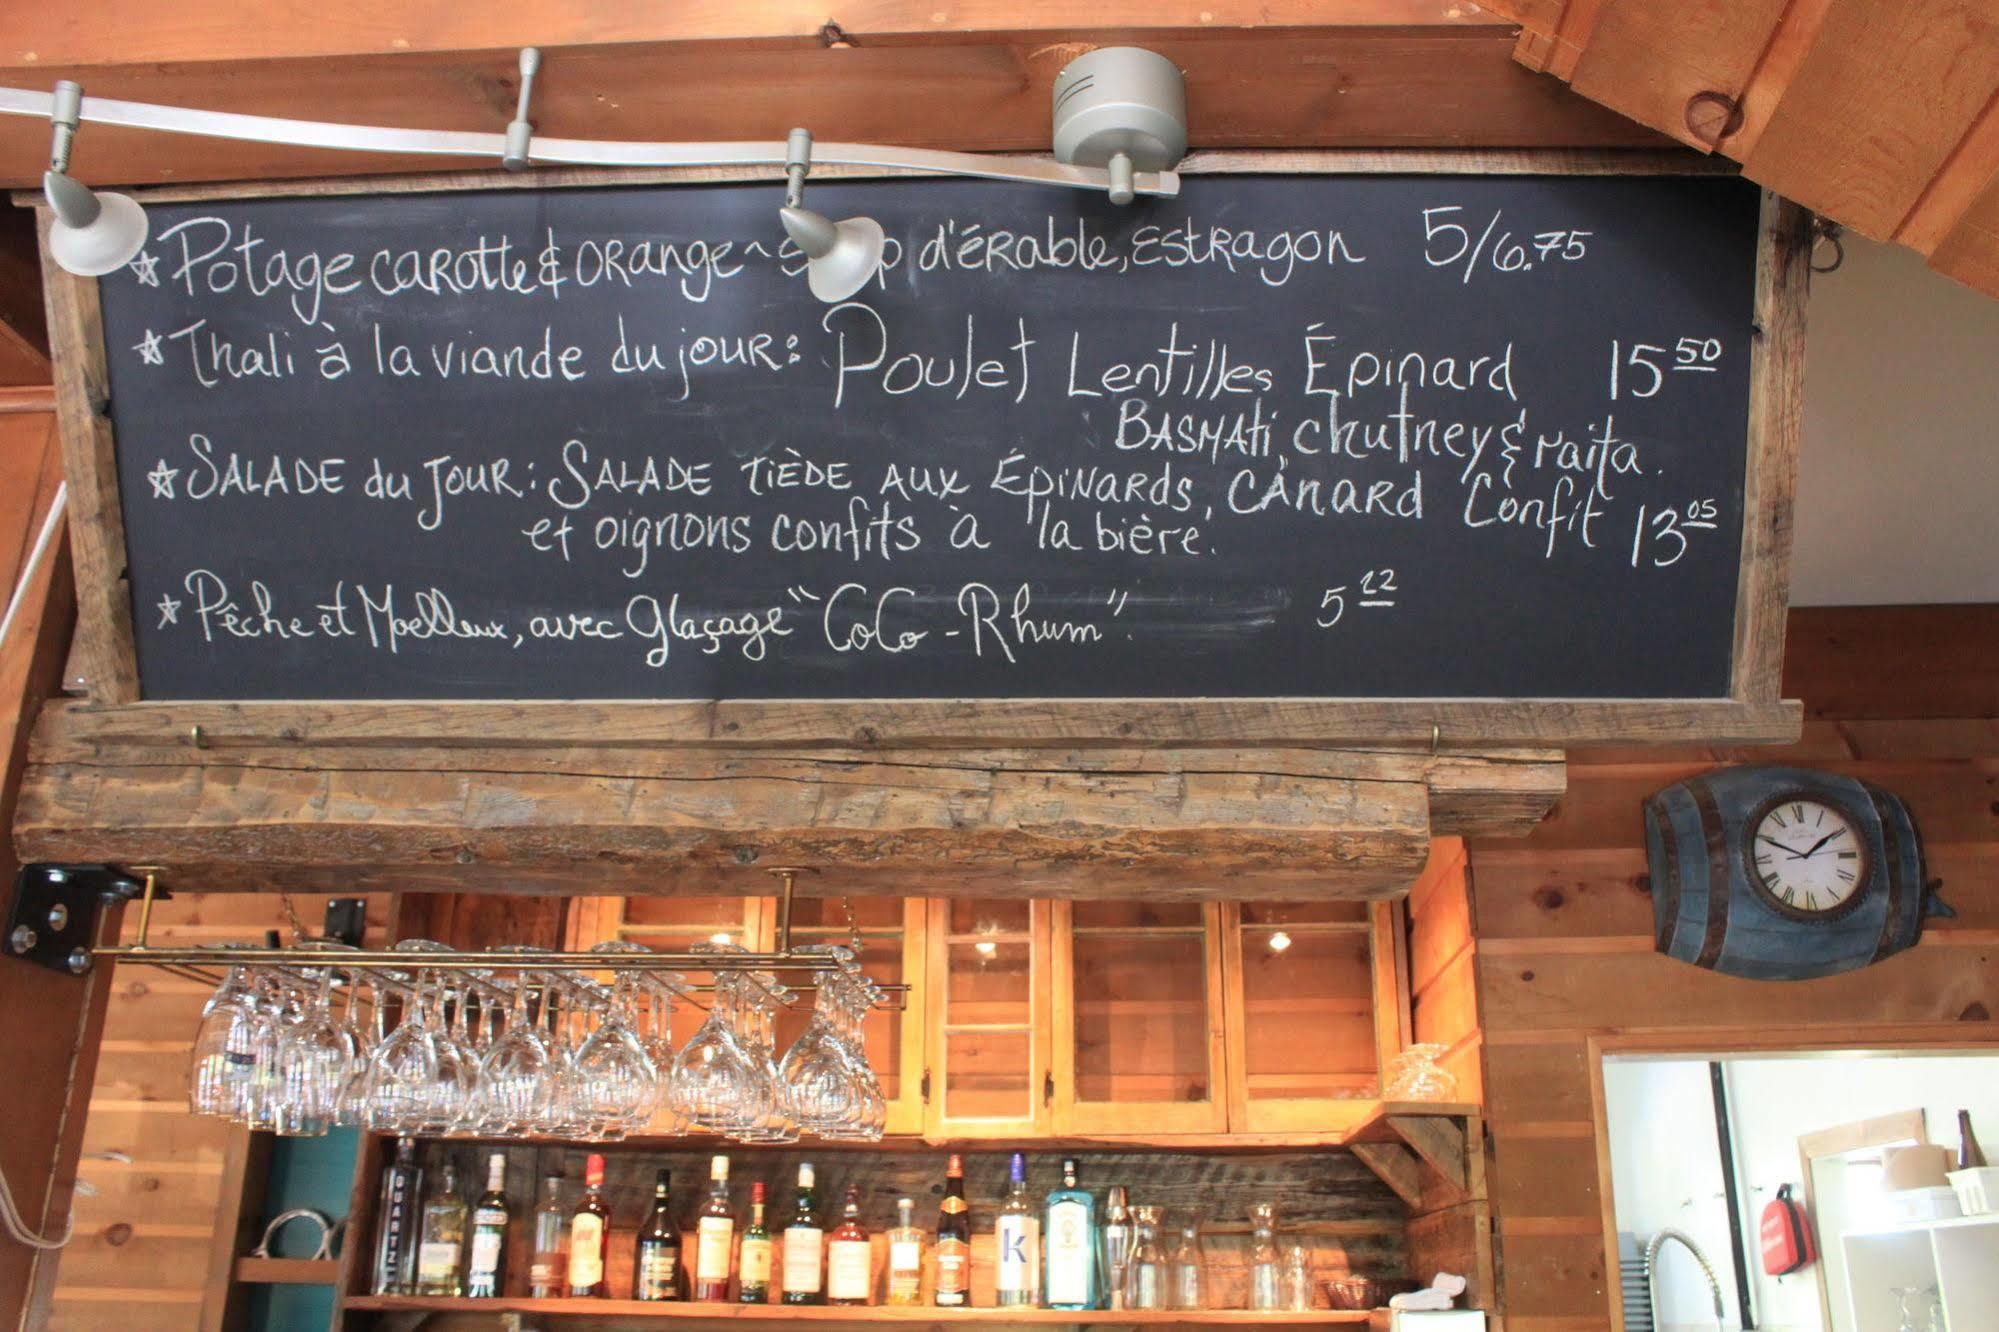 Potage carotte & orange ~ d'érable, Estragon 5/6.75
Thali à la viande du jour: Poulet Lentilles Épinard 15 50
Basmati, chutney & raita.
Salade du jour: Salade tiède aux Épinards, Canard Confit
et oignons confits à la bière. 13 05
Pêche et Moelleux, avec Glaçage "CoCo-Rhum". 5 22
QUARTZ
k